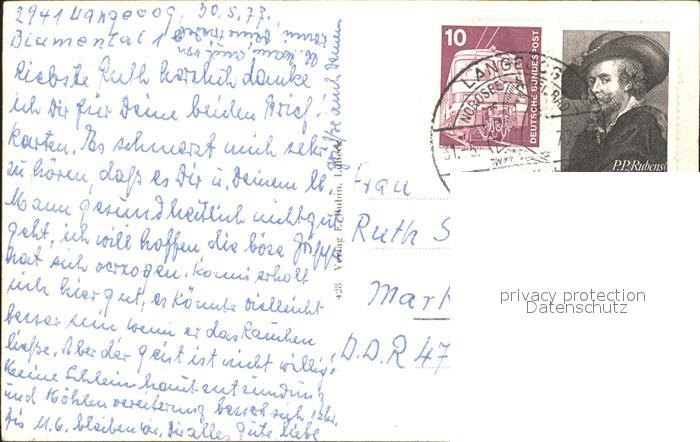 2941 Langeoog, 30.5.77.
Blumental 1
Liebste Ruth herzlich danke
ich Dir für Deine beiden Brief-
karten. Es schmerzt mich sehr
zu hören, daß es Dir u. Deinem lb.
Mann gesundheitlich nicht gut
geht, ich will hoffen die böse Grippe
hat sich verzogen. Konni erholt
sich hier gut, es könnte vielleicht
besser sein wenn er das Rauchen
ließe. Aber der Geist ist nicht willig.
Seine Schleimhautentzündung
und Höhlenvereiterung bessert sich sehr.
Bis 11.6. bleiben wir. Dir alles Gute, liebe
428 Verlag E. Rubin,
Frau
Ruth S
Mark
D.D.R 47
10
DEUTSCHE BUNDESPOST
LANGE
NORDSE
31.-5.
P.P. Rubens
privacy protection
Datenschutz